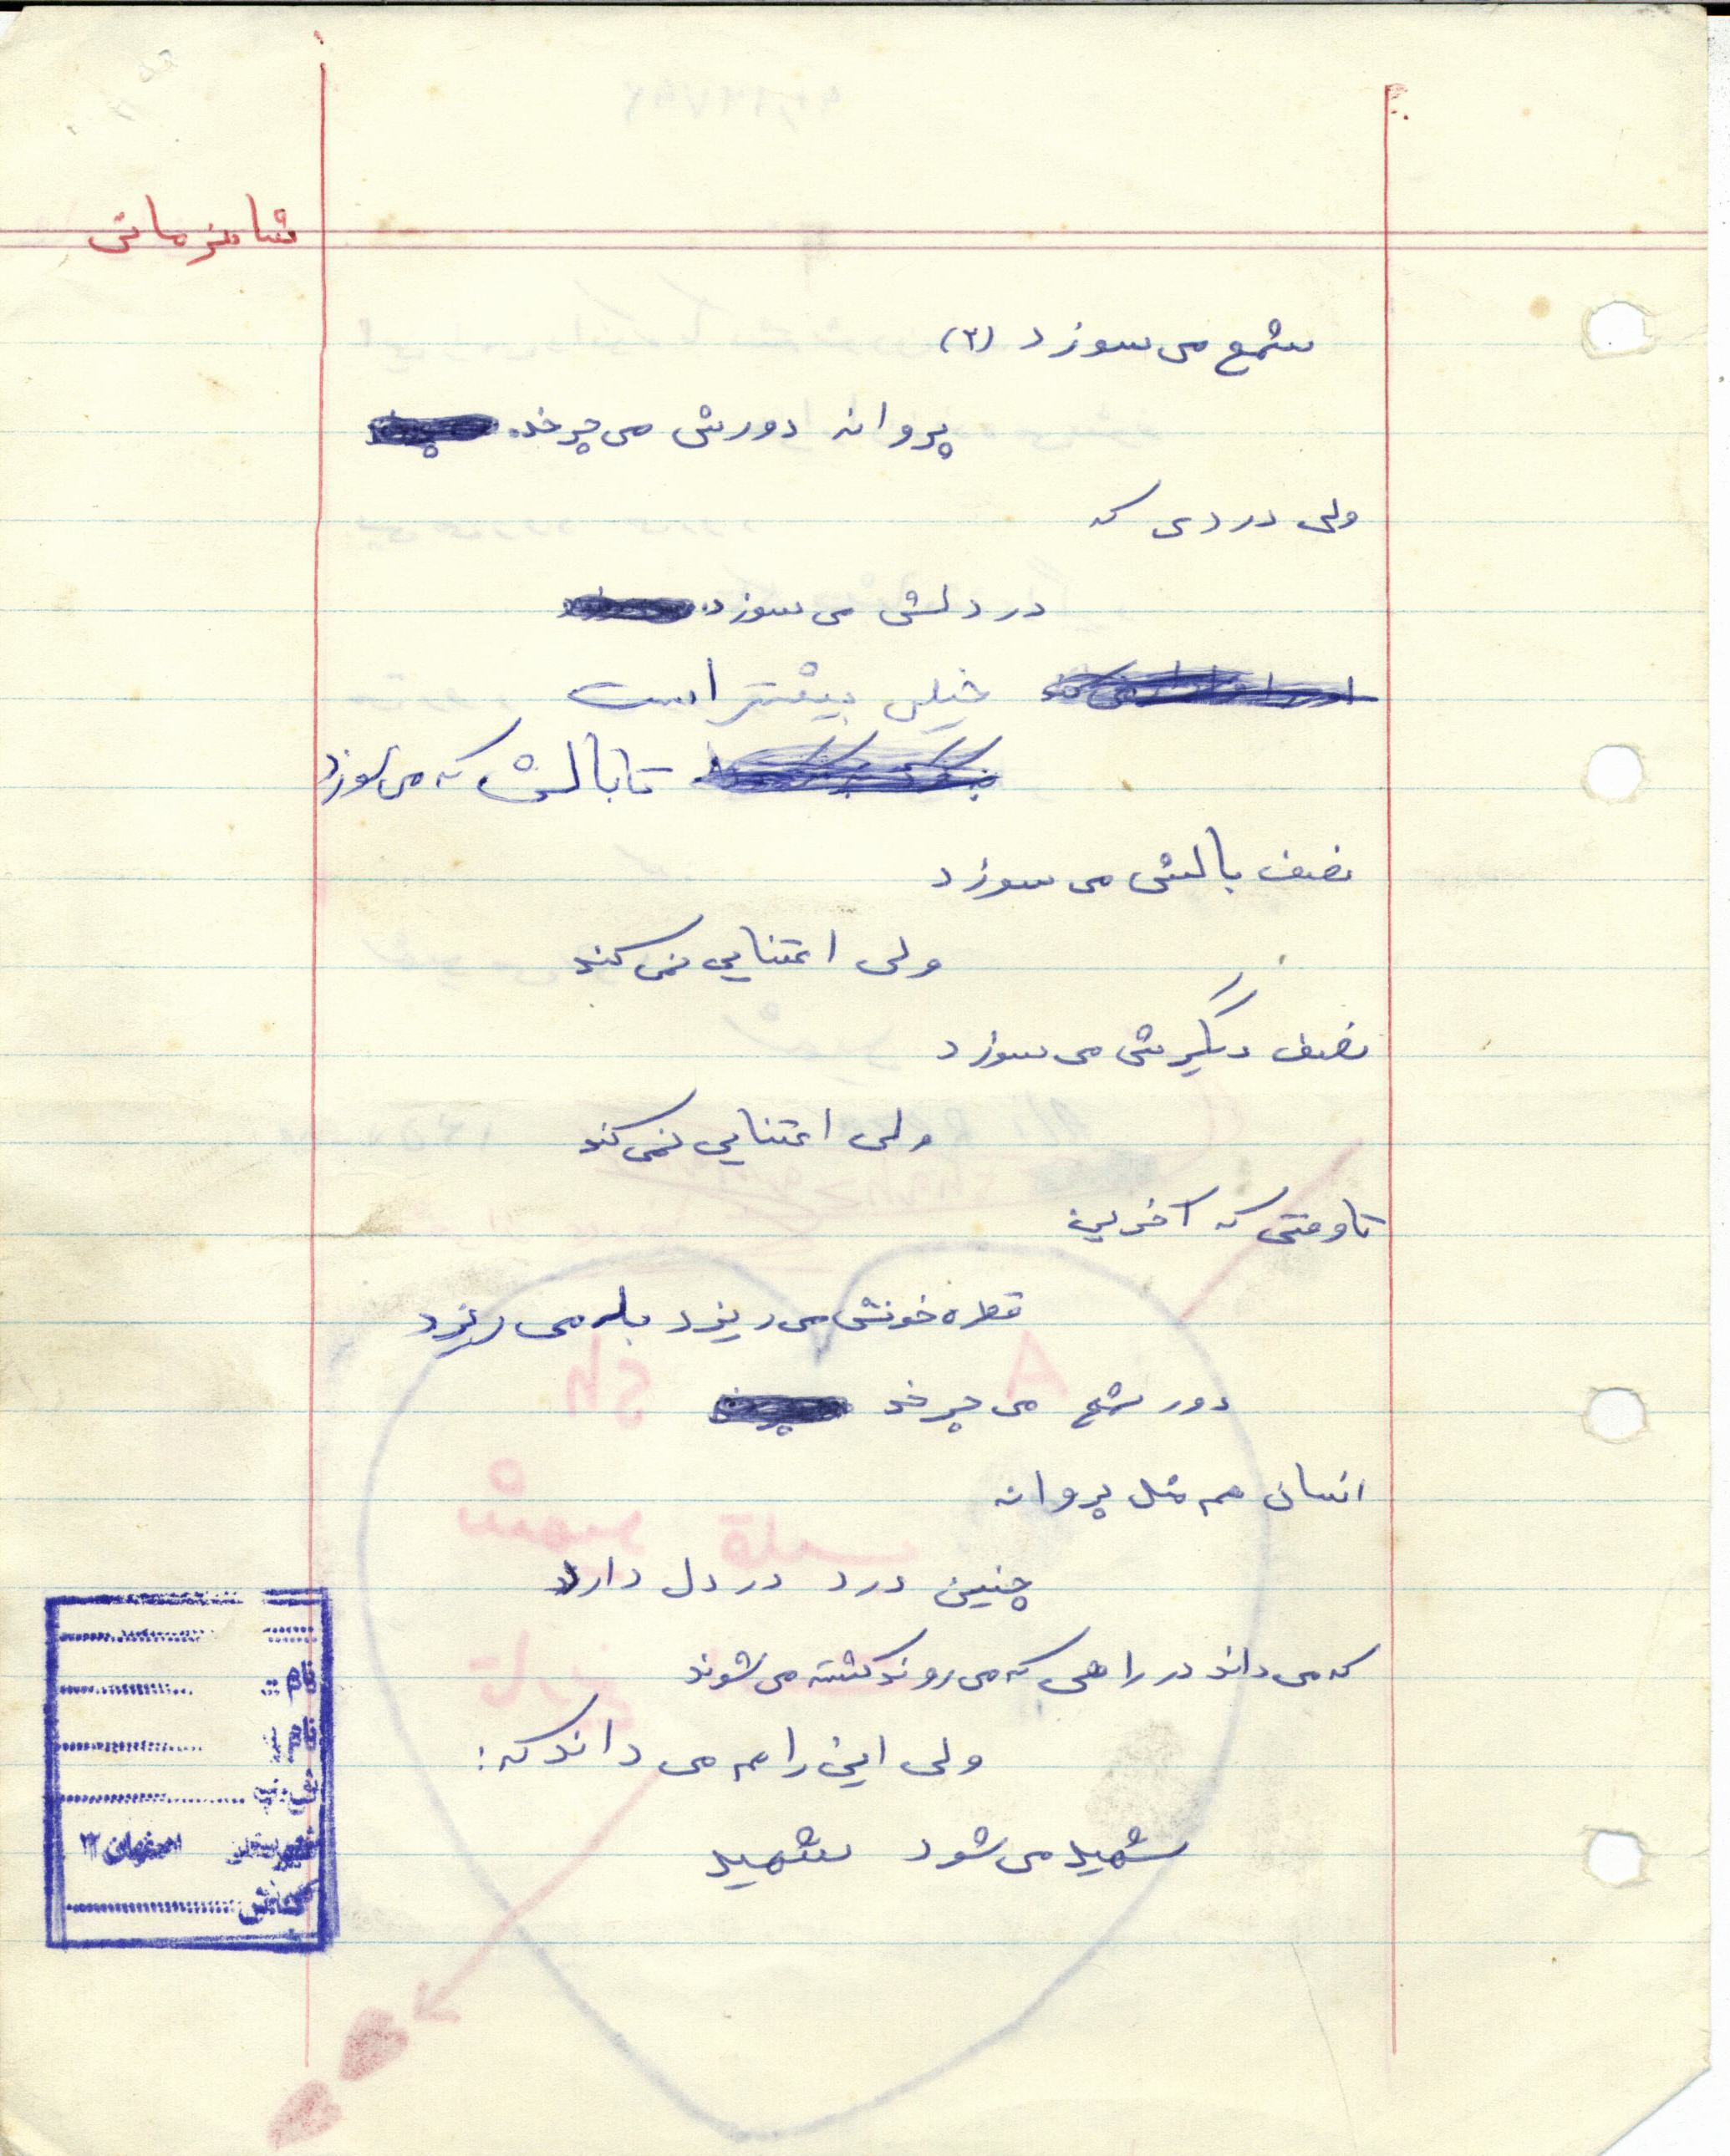 شمع می سوزد (۲)
پروانه دورش می چرخد.
ولی دردی که
در دلش می سوزد.
خیلی بیشتر است
تا بالش که می سوزد
نصف بالش می سوزد
ولی اعتنایی نمی کند
نصف دیگرش می سوزد
ولی اعتنایی نمی کند
تا وقتی که آخرین
قطره خونش می ریزد بله می ریزد
دور شمع می چرخد
انسان هم مثل پروانه
چنین درد در دل دارد
که می داند در راهی که می روند کشته می شوند
ولی این را هم می داند که:
شهید می شود شهید
نام
نام
ش. پ
شهرستان اصفهان ۲۳